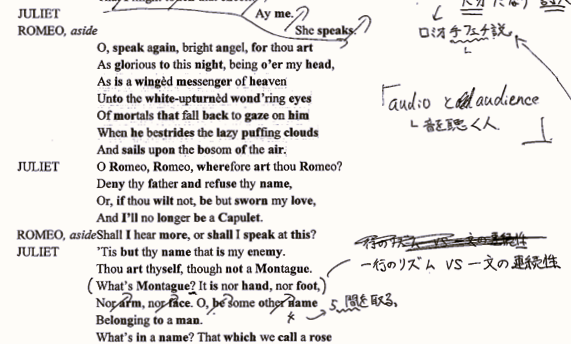 JULIET Ay me.
ROMEO, aside She speaks.
O, speak again, bright angel, for thou art
As glorious to this night, being o'er my head,
As is a wingèd messenger of heaven
Unto the white-upturnèd wond'ring eyes
Of mortals that fall back to gaze on him
When he bestrides the lazy puffing clouds
And sails upon the bosom of the air.
JULIET O Romeo, Romeo, wherefore art thou Romeo?
Deny thy father and refuse thy name,
Or, if thou wilt not, be but sworn my love,
And I'll no longer be a Capulet.
ROMEO, aside Shall I hear more, or shall I speak at this?
JULIET 'Tis but thy name that is my enemy.
Thou art thyself, though not a Montague.
(What's Montague? It is nor hand, nor foot,)
Nor arm, nor face. O, be some other name
Belonging to a man.
What's in a name? That which we call a rose
ロミオ手フェチ説
「audio と audience
音を聴く人
一行のリズム VS 一文の連続性
一行のリズム VS 一文の連続性
間を取る。